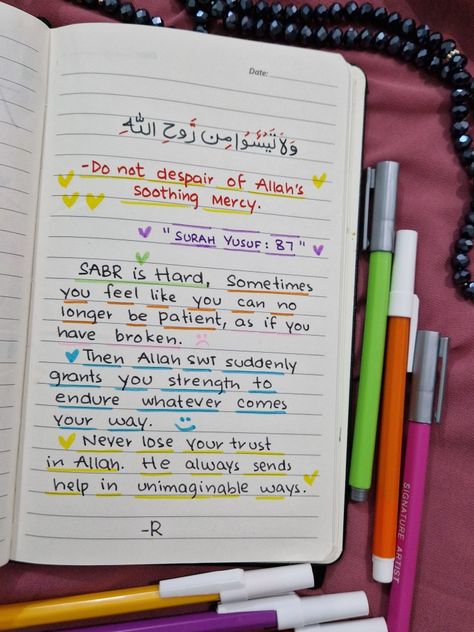 Date:
وَلَا تَيْئَسُوا مِن رَّوْحِ اللَّهِ
-Do not despair of Allah's
soothing Mercy.
"SURAH YUSUF: 87"
SABR is Hard, Sometimes
you feel like you can no
longer be patient, as if you
have broken.
Then Allah SWT suddenly
grants you strength to
endure whatever comes
your way.
Never lose your trust
in Allah. He always sends
help in unimaginable ways.
-R
SIGNATURE ARTIST